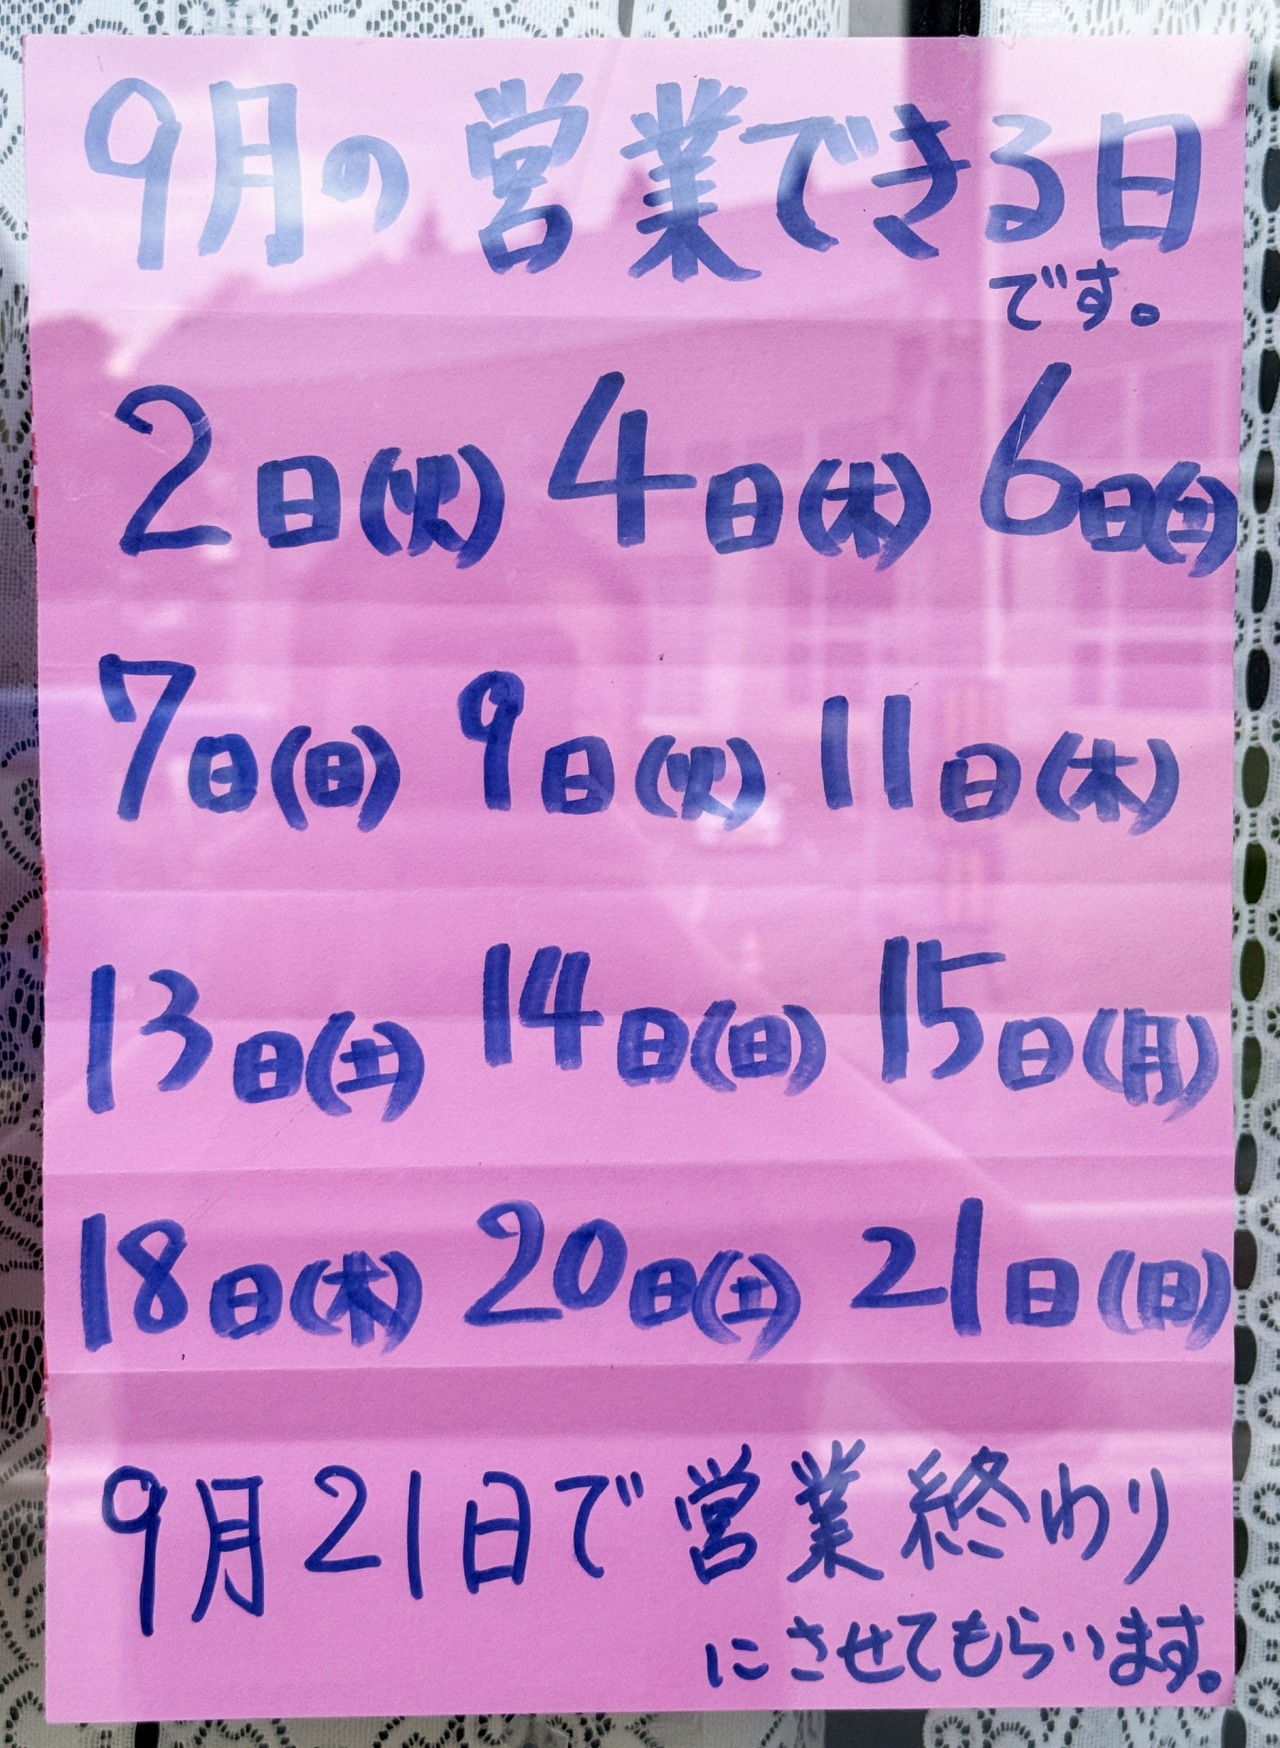 9月の営業できる日
です。
2日(火) 4日(木) 6日(土)
7日(日) 9日(火) 11日(木)
13日(土) 14日(日) 15日(月)
18日(木) 20日(土) 21日(日)
9月21日で営業終わり
にさせてもらいます。